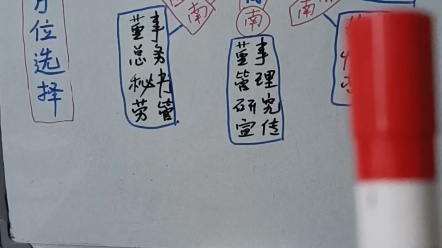 方位选择
南
南
南
董事
总务
秘书
劳管
董事
管理
研究
宣传